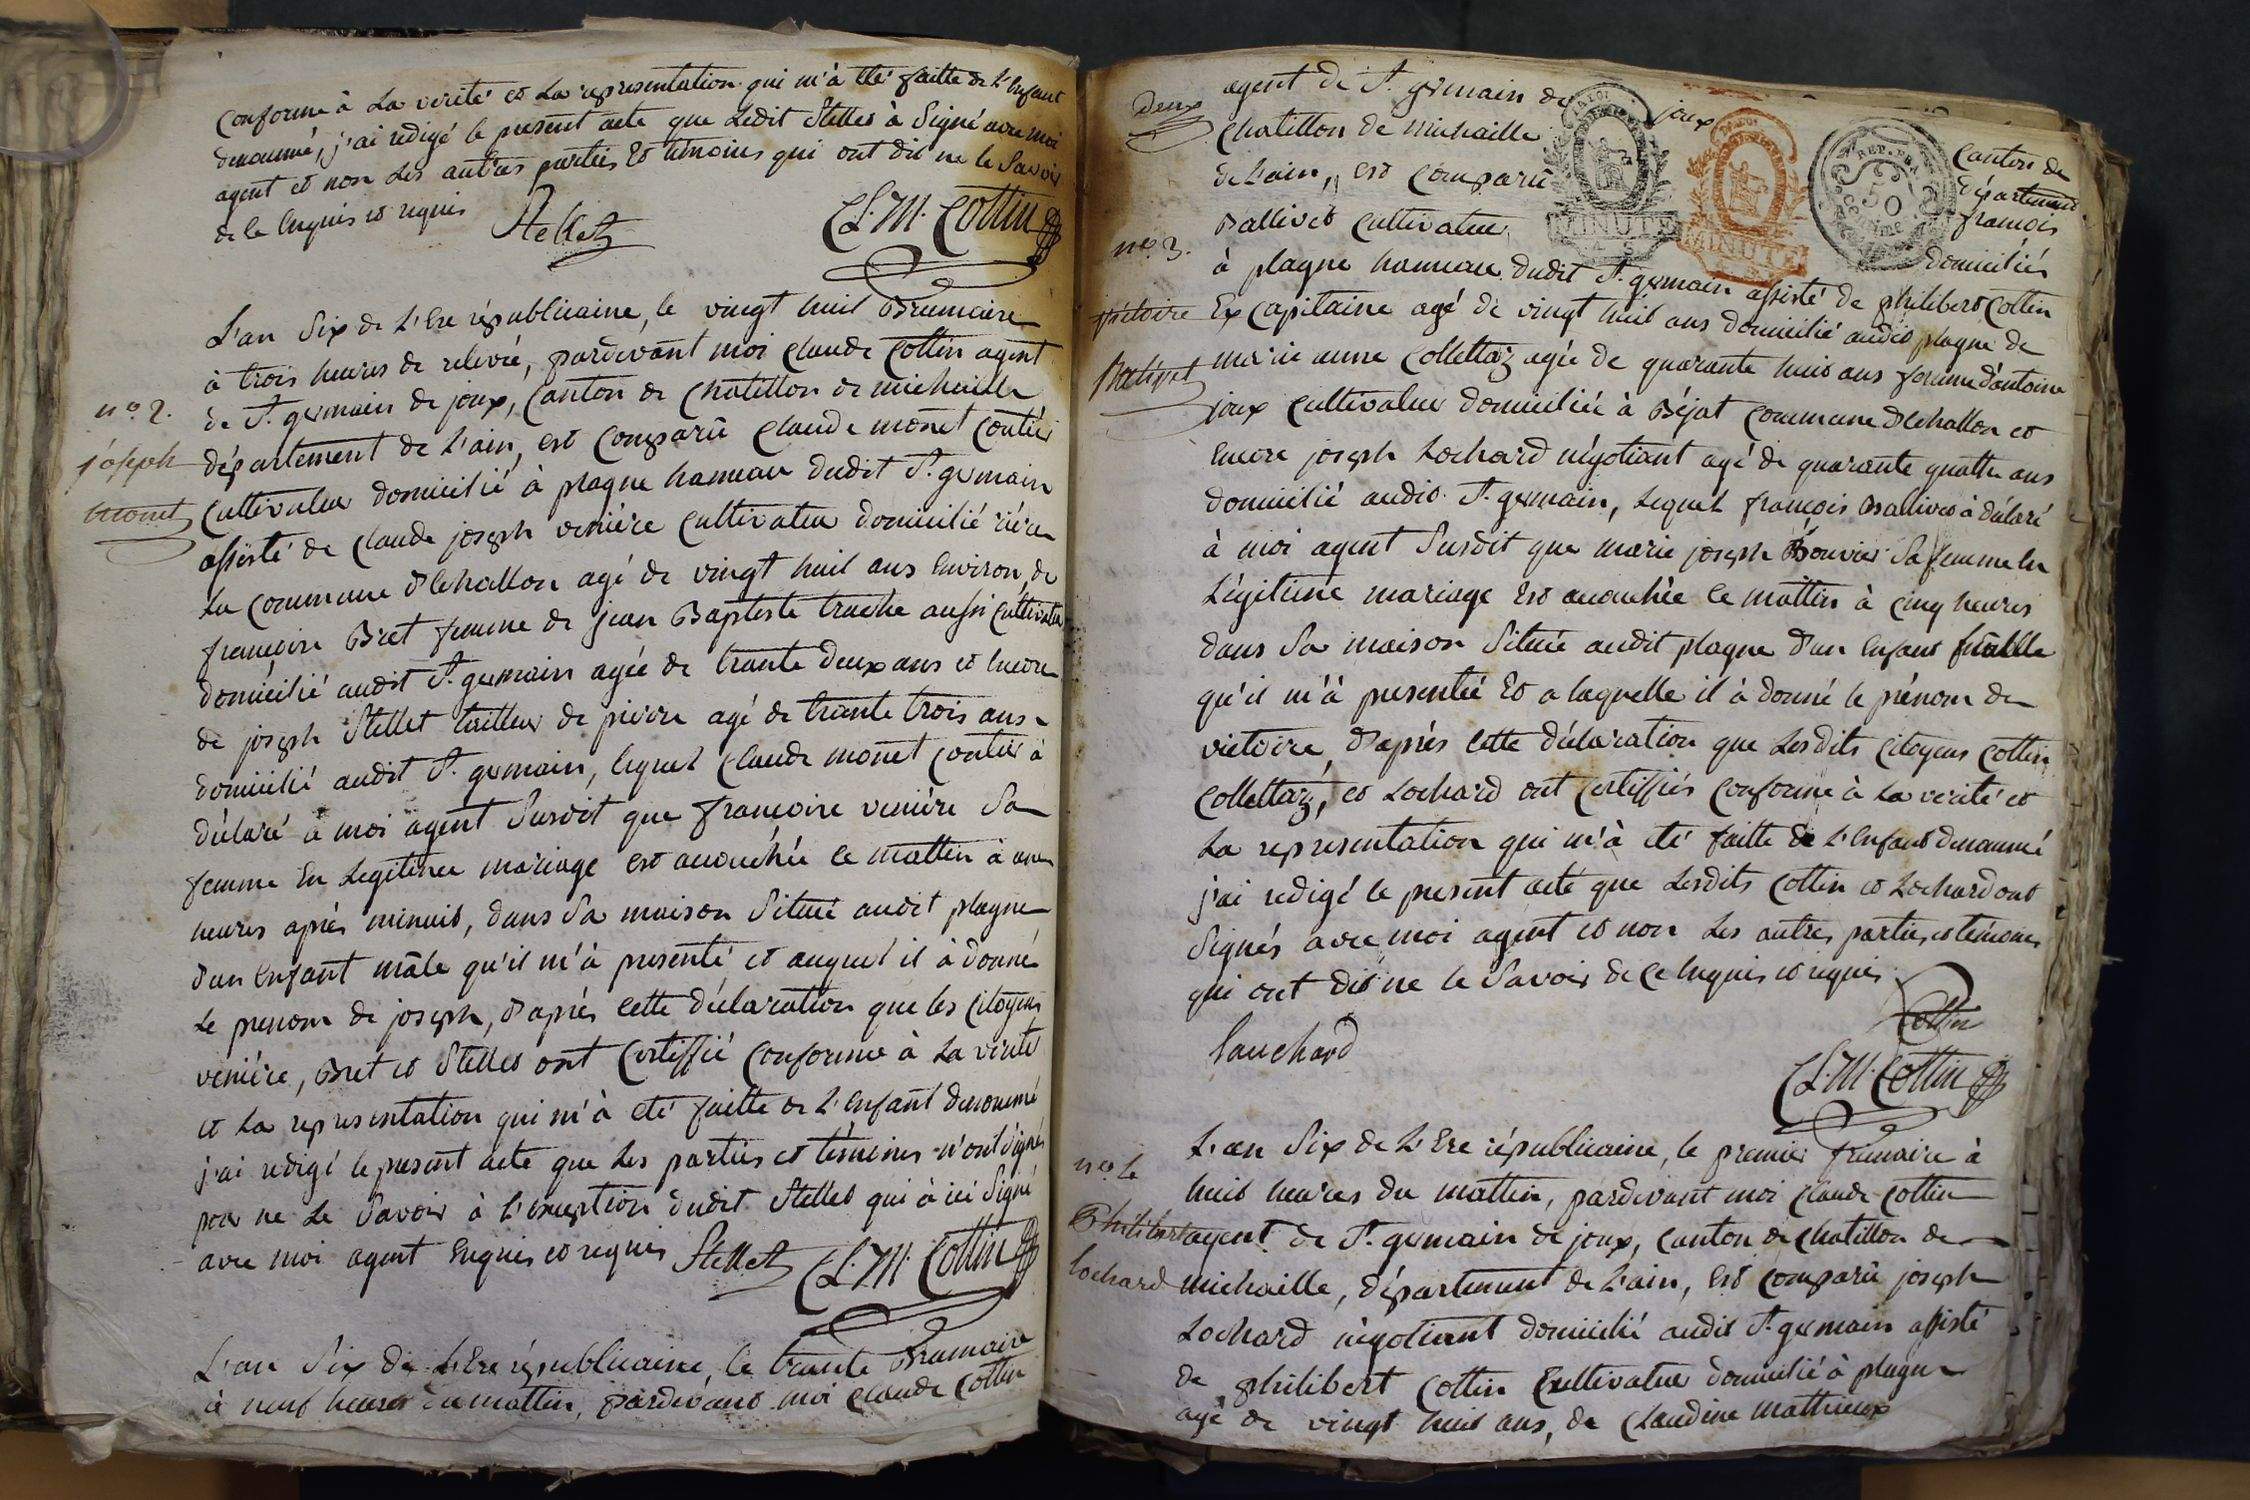 conforme à La verité et La representation qui m'à eté faitte de L'enfant
denommé, j'ai redigé le present acte que Ledit Stellet à Signé avec moi
agent et non Les autres parties et temoins qui ont dit ne le Savoir
de ce enquis et requis
Stellet
CL. M. Cottin
L'an Six de L'Ere républicaine, le vingt huit Brumaire
à trois heures de relevée, pardevant moi Claude Cottin agent
de St. germain de joux, Canton de Chatillon de michaille
n.o 2.
joseph
monet
département de L'ain, est Comparû Claude monet
Cultivateur domicilié à plagne hameau dudit St. germain
assisté de Claude joseph veniére Cultivateur domicilié
La Commune d'Echallon agé de vingt huit ans Environ, de
françoise Bret femme de jean Baptiste truche aussi Cultivateur
domicilié audit St. germain agée de trante deux ans et Encore
de joseph Stellet tailleur de pierre agé de trante trois ans
domicilié audit St. germain, lequel Claude monet à
déclaré à moi agent Susdit que françoise veniére Sa
femme En Legitime mariage est accouchée ce mattin à
heures aprés minuit, dans Sa maison Situé audit plagne
d'un Enfant mâle qu'il m'à presenté et auquel il à donné
Le prenom de joseph, D'aprés cette déclaration que les Citoyens
veniére, Bret et Stellet ont Certiffié Conforme à La verité
et La representation qui m'à eté faitte de L'Enfant denommé
j'ai redigé le present acte que Les parties et témoins n'ont Signés
pour ne Le Savoir à L'exception dudit Stellet qui à ici Signé
avec moi agent Enquis et requis Stellet CL. M. Cottin
L'an Six de L'Ere républicaine, le trante Brumaire
à neuf heures du mattin, pardevant moi Claude Cottin
Deux
agent de St. germain de joux Canton de
Chatillon de michaille Département
de L'ain, est Comparû françois
Ballivet Cultivateur domicilié
MINUTE
MINUTE
REP. FRA.
50
n.o 3.
victoire
Ballivet
à plagne hameau dudit St. germain assisté de philibert Cottin
Ex Capitaine agé de vingt huit ans domicilié audit plagne de
marie anne Collettaz agée de quarante huit ans femme d'antoine
joux Cultivateur domiciliée à Béjat Commune d'Echallon et
Encore joseph Lochard négotiant agé de quarante quatre ans
domicilié audit St. germain, Lequel françois Ballivet à déclaré
à moi agent Susdit que marie joseph Bouvier Sa femme En
Légitime mariage Est accouchée ce mattin à cinq heures
dans Sa maison Située audit plagne d'un Enfant femelle
qu'il m'à presenté Et a laquelle il à donné le prénom de
victoire, D'aprés cette déclaration que Lesdits Citoyens Cottin
Collettaz, et Lochard ont Certiffiés Conforme à La verité et
La representation qui m'à eté faitte de L'Enfant denommé
j'ai redigé le present acte que Lesdits Cottin et Lochard ont
Signés avec moi agent et non Les autres parties et témoins
qui ont dit ne le Savoir de ce Enquis et requis
Cottin
Lauchard
CL. M. Cottin
n.o 4
Philibert
Lochard
L'an Six de L'Ere républicaine, le premier frimaire à
huit heures du mattin, pardevant moi Claude Cottin
agent de St. germain de joux, Canton de Chatillon de
michaille, département de L'ain, Est Comparû joseph
Lochard négotiant domicilié audit St. germain assisté
de philibert Cottin Cultivateur domicilié à plagne
agé de vingt huit ans, de Claudine mathieux